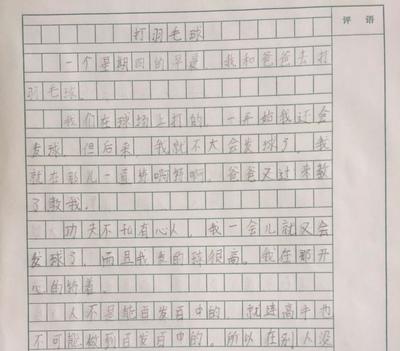 评语
打羽毛球
一个星期四的早晨，我和爸爸去打
羽毛球。
我们在球场上打的，一开始我还会
发球，但后来，我就不大会发球了，我
就在那儿一直转啊转啊，爸爸又过来教
了教我。
功夫不负有心人，我一会儿就又会
发球了，而且我发的球很高。我在那开
心的转着。
人不是能百发百中的，就连高手也
不可能做到百发百中的。所以在别人没